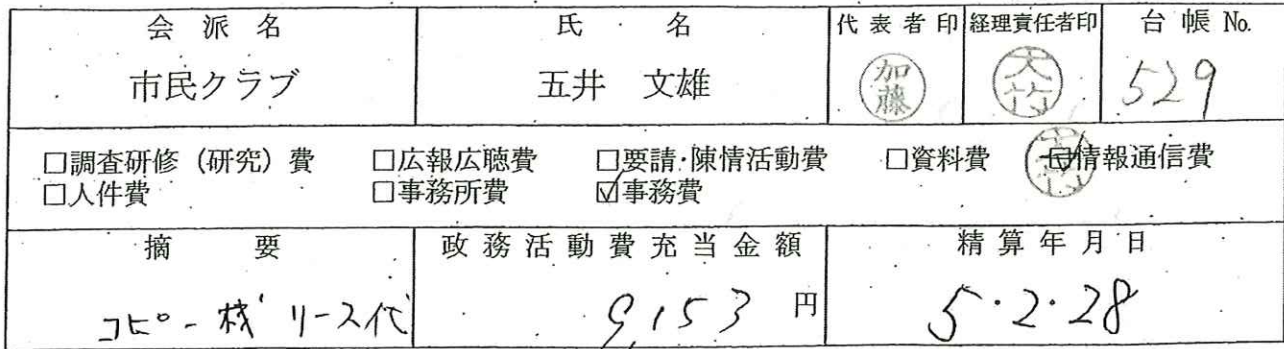 会派名 氏名 代表者印 経理責任者印 台帳 No.
市民クラブ 五井 文雄 加藤 大竹 529
□調査研修(研究)費 □広報広聴費 □要請・陳情活動費 □資料費 ☑情報通信費
□人件費 □事務所費 ☑事務費
摘要 政務活動費充当金額 精算年月日
コピー機 リース代 9,153 円 5・2・28